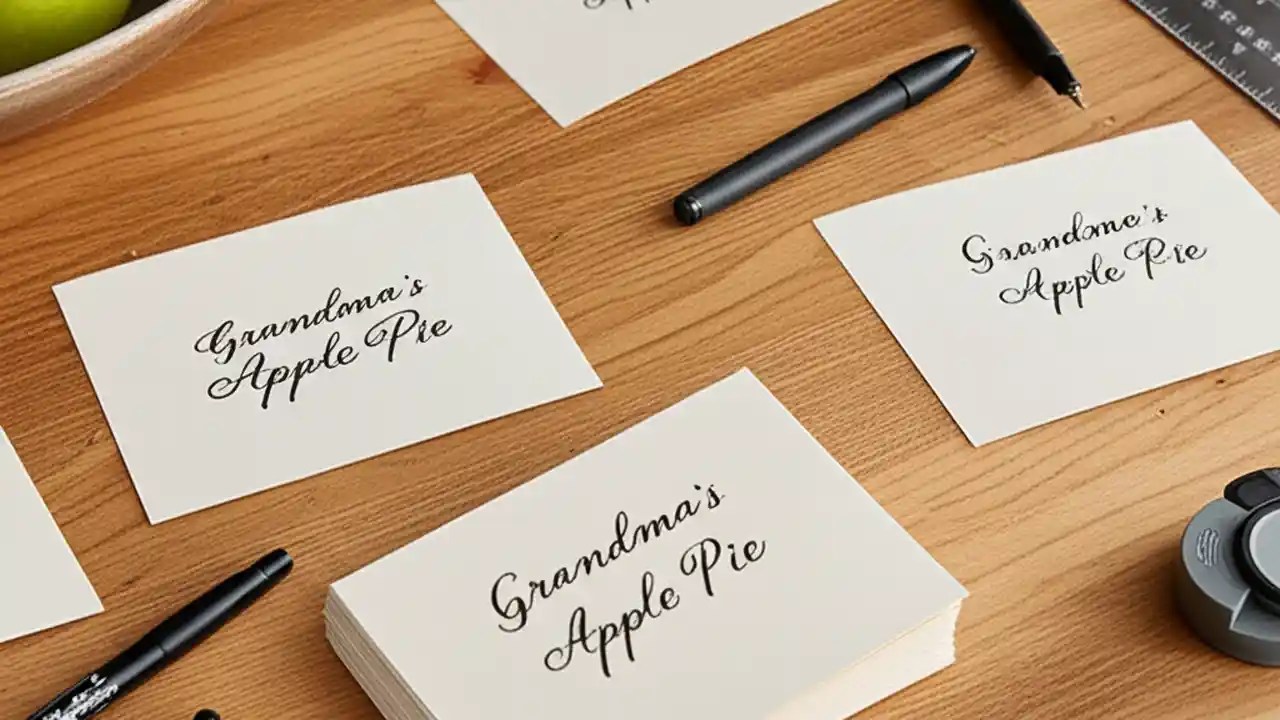 Apple
Grandma's
Apple Pie
Grandma's
Apple Pie
Grandma's
Apple Pie